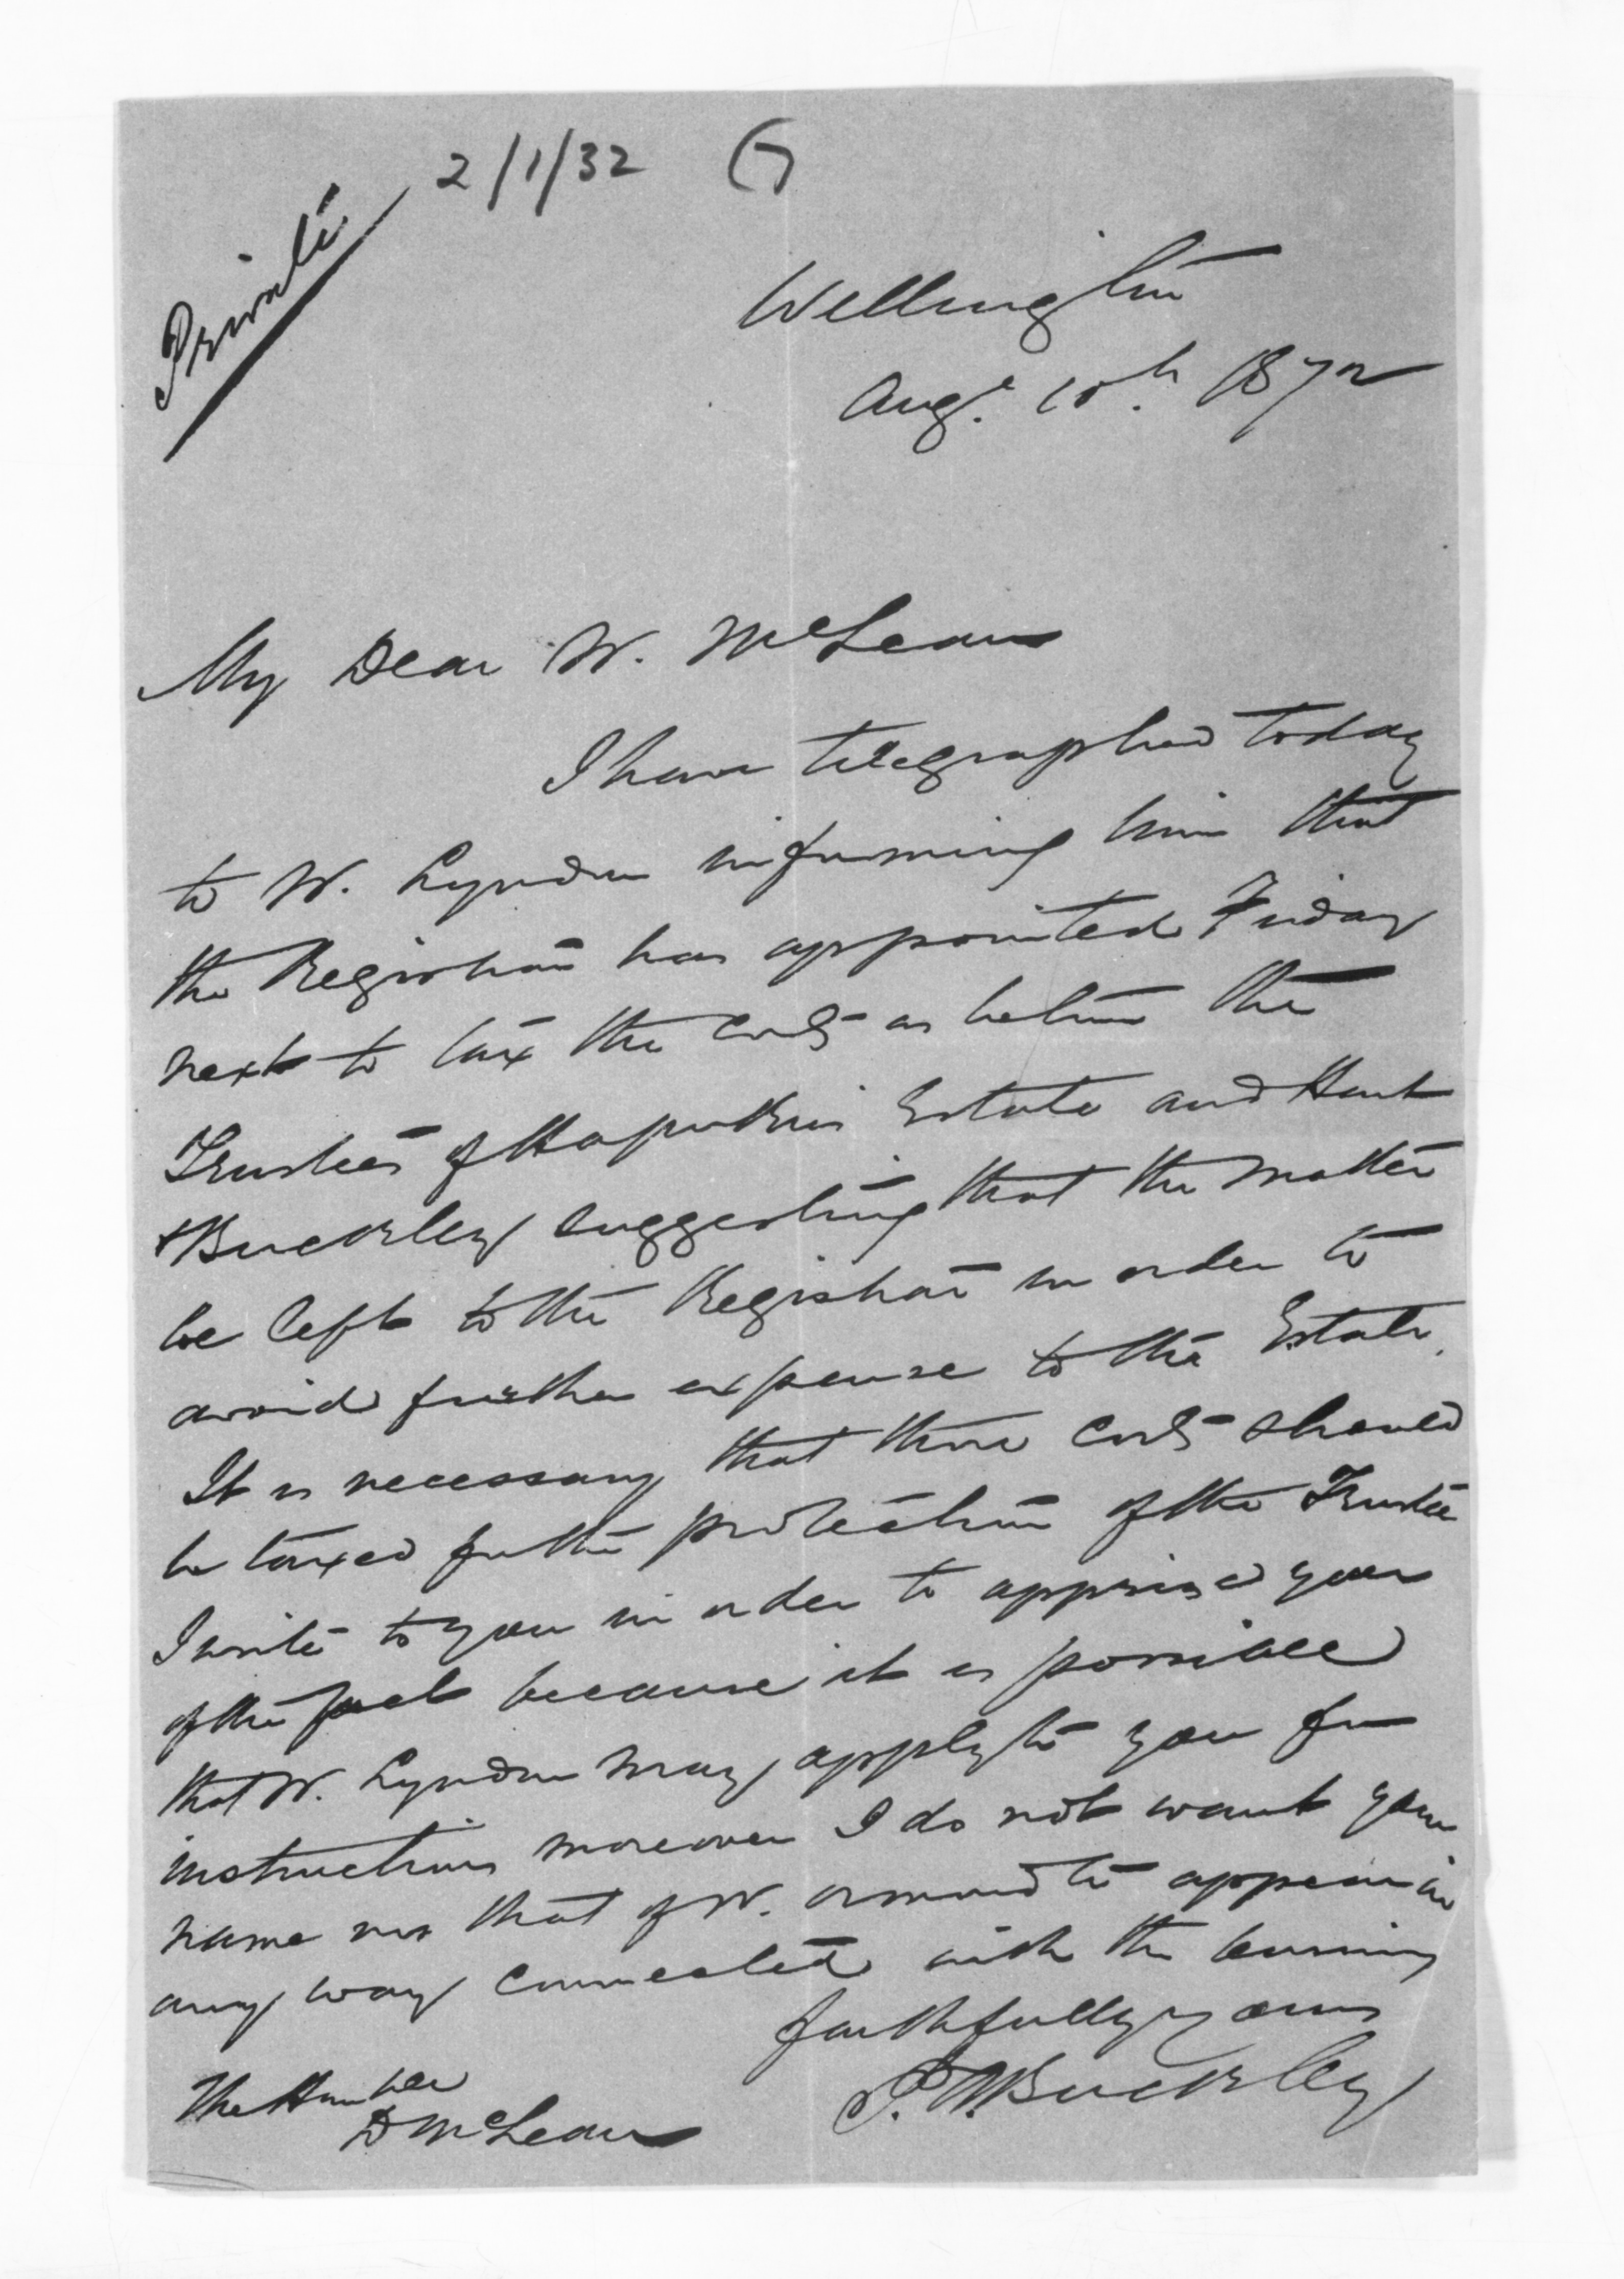 2/1/32 G
Private
Wellington
Augt. 10th. 1872
My Dear Mr. McLean
I have telegraphed today
to Mr. Lyndon informing him that
the Registrar has appointed Friday
next to tax the costs as between the
Trustees of Estate and Hart
& Buckley suggesting that the matter
be left to the Registrar in order to
avoid further expense to the Estate.
It is necessary that those costs should
be taxed for the protection of the Trustee
I write to you in order to apprise you
of the fact because it is possible
that Mr. Lyndon may apply to you for
instructions moreover I do not want your
name nor that of Mr. Ormond to appear in
any way connected with the business
faithfully yours
P. A. Buckley
The Honble
D McLean